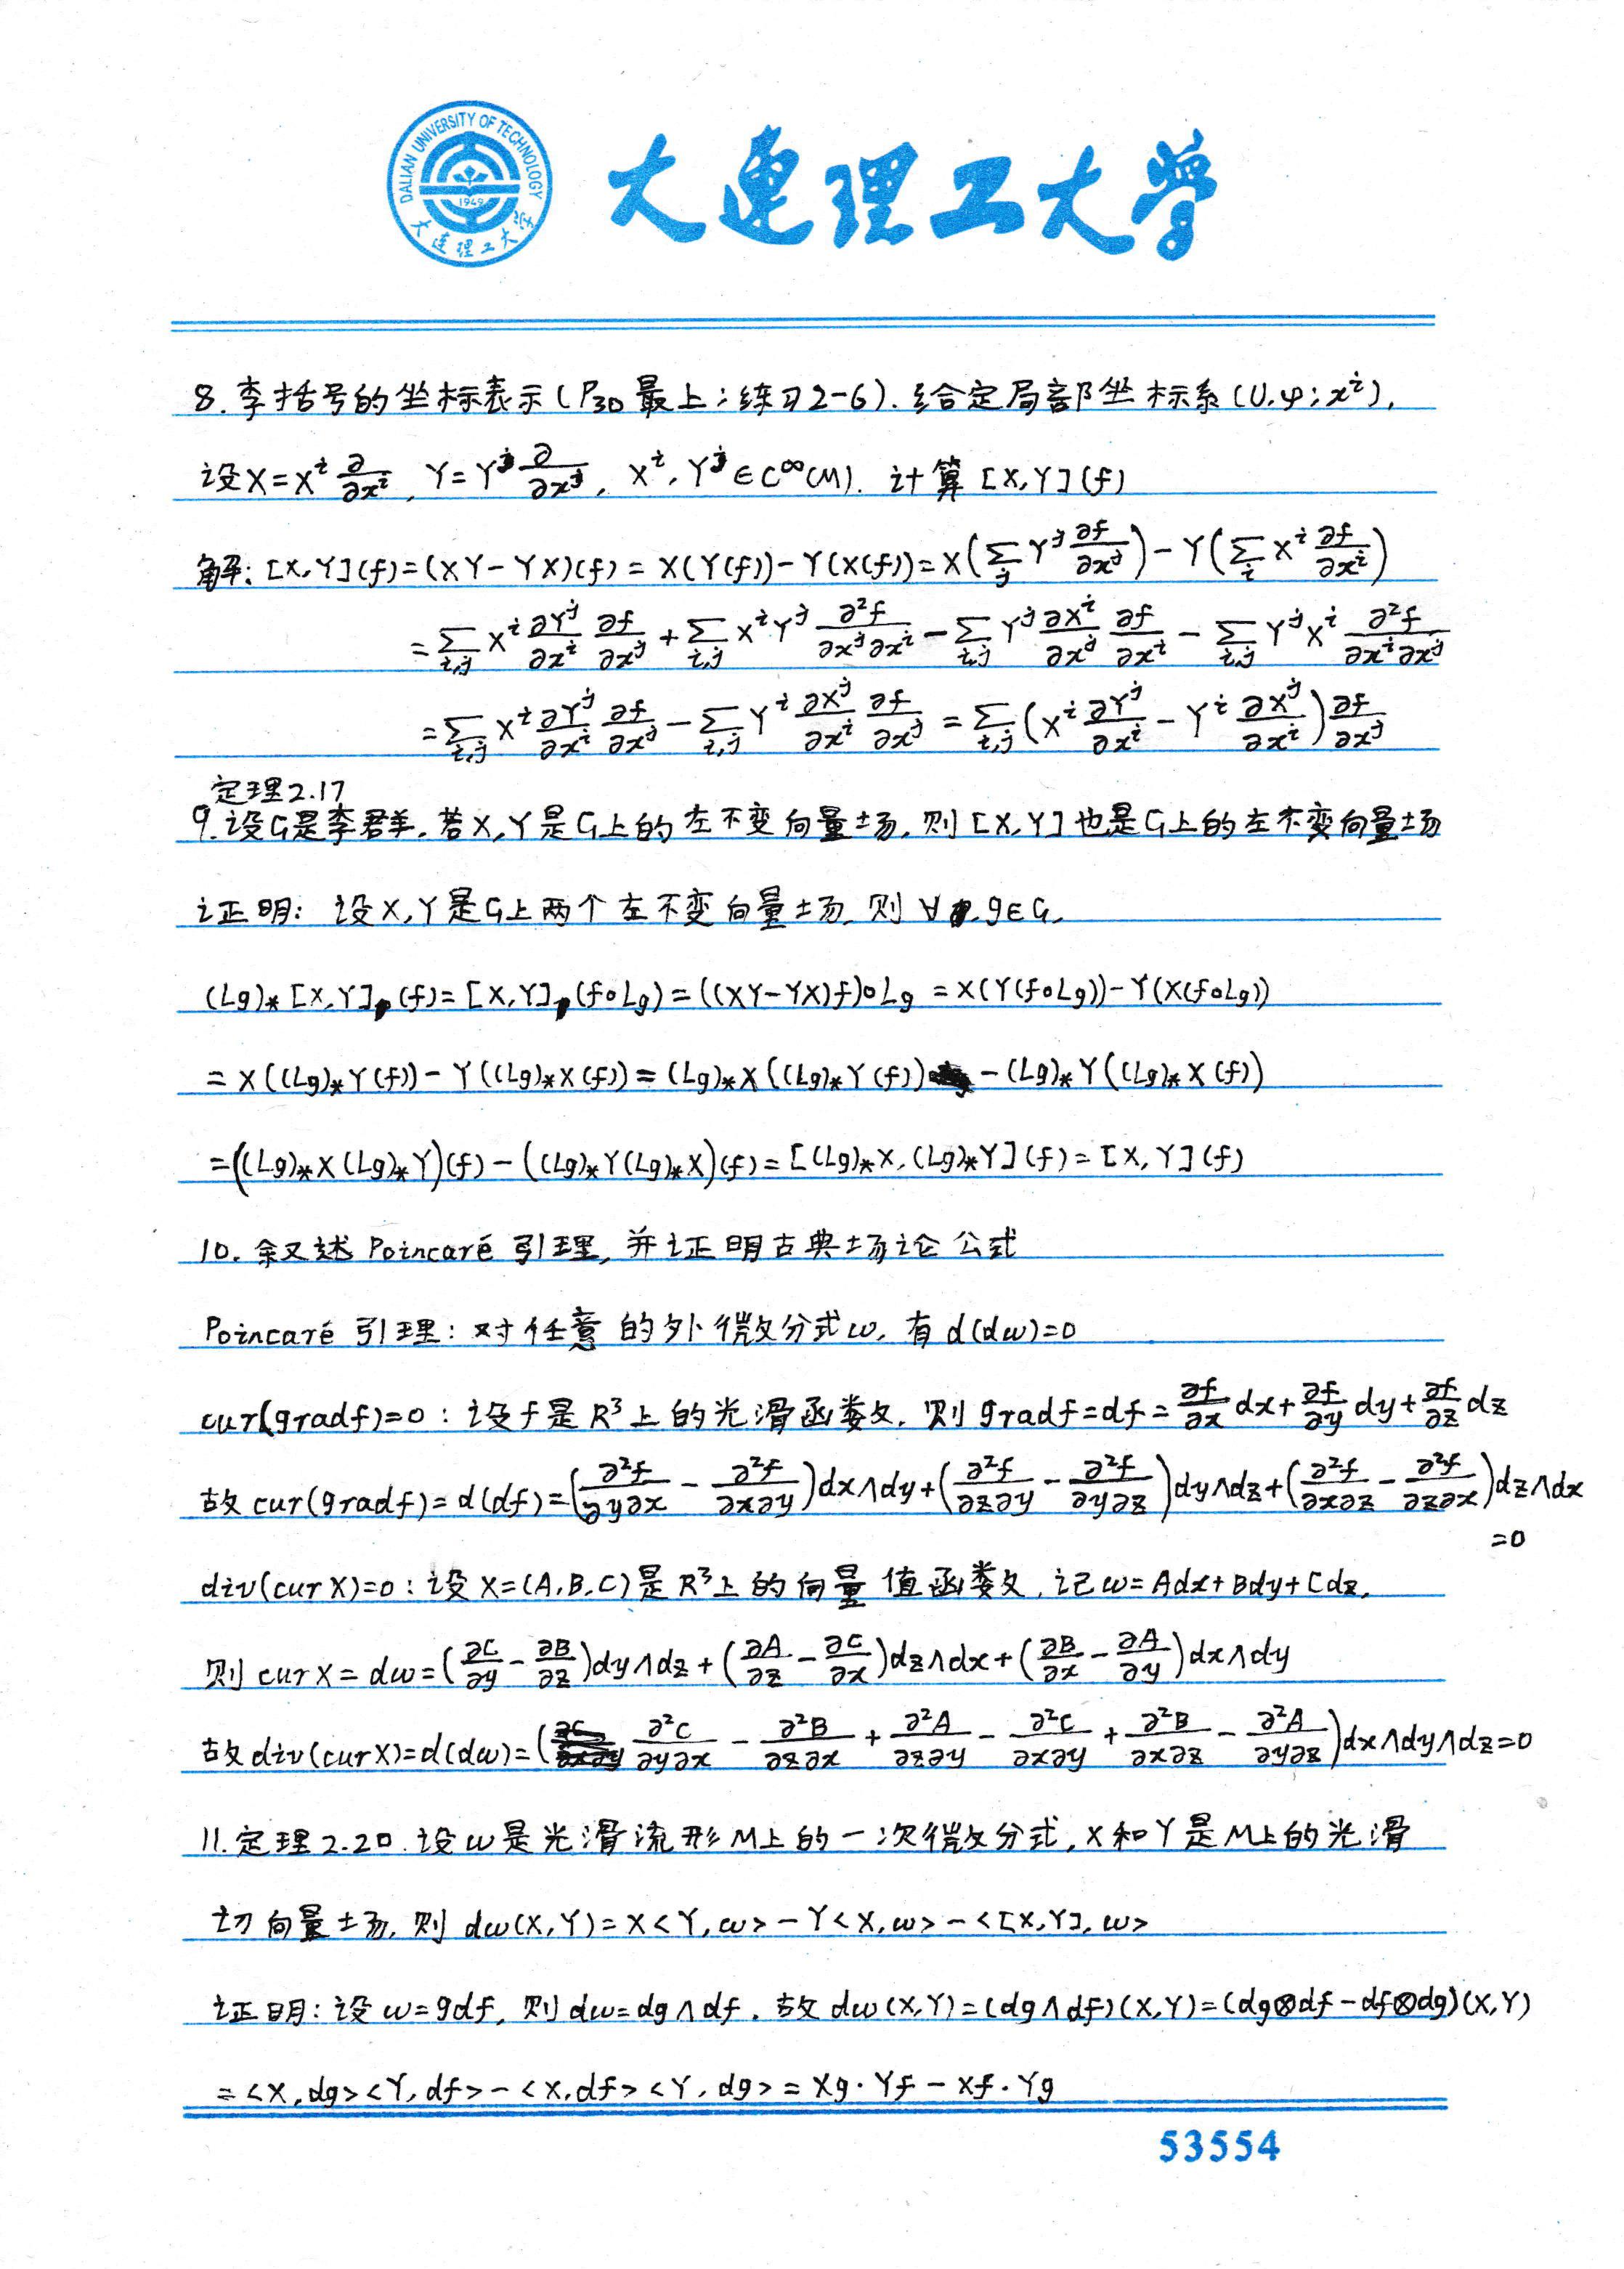 DALIAN UNIVERSITY OF TECHNOLOGY
1949
大连理工大学
大连理工大学
8. 李括号的坐标表示 (P₃₀ 最上: 练习2-6). 给定局部坐标系 (U, φ; xⁱ),
设 X = Xⁱ ∂/∂xⁱ, Y = Yʲ ∂/∂xʲ, Xⁱ, Yʲ ∈ C^∞(M). 计算 [X,Y](f)
解: [X,Y](f) = (XY-YX)(f) = X(Y(f)) - Y(X(f)) = X(∑_j Yʲ ∂f/∂xʲ) - Y(∑_i Xⁱ ∂f/∂xⁱ)
= ∑_{i,j} Xⁱ ∂Yʲ/∂xⁱ ∂f/∂xʲ + ∑_{i,j} XⁱYʲ ∂²f/∂xʲ∂xⁱ - ∑_{i,j} Yʲ ∂Xⁱ/∂xʲ ∂f/∂xⁱ - ∑_{i,j} YʲXⁱ ∂²f/∂xⁱ∂xʲ
= ∑_{i,j} Xⁱ ∂Yʲ/∂xⁱ ∂f/∂xʲ - ∑_{i,j} Yⁱ ∂Xʲ/∂xⁱ ∂f/∂xʲ = ∑_{i,j} (Xⁱ ∂Yʲ/∂xⁱ - Yⁱ ∂Xʲ/∂xⁱ) ∂f/∂xʲ
定理2.17
9. 设G是李群, 若X,Y是G上的左不变向量场, 则[X,Y]也是G上的左不变向量场
证明: 设X,Y是G上两个左不变向量场, 则 ∀ g∈G,
(Lg)_*[X,Y]_p(f) = [X,Y]_p(f∘Lg) = ((XY-YX)f)∘Lg = X(Y(f∘Lg)) - Y(X(f∘Lg))
= X((Lg)_*Y(f)) - Y((Lg)_*X(f)) = (Lg)_*X((Lg)_*Y(f)) - (Lg)_*Y((Lg)_*X(f))
= ((Lg)_*X(Lg)_*Y)(f) - ((Lg)_*Y(Lg)_*X)(f) = [(Lg)_*X, (Lg)_*Y](f) = [X,Y](f)
10. 叙述 Poincaré 引理, 并证明古典场论公式
Poincaré 引理: 对任意的外微分式ω, 有 d(dω)=0
cur(gradf)=0: 设f是R³上的光滑函数, 则 gradf = df = ∂f/∂x dx + ∂f/∂y dy + ∂f/∂z dz
故 cur(gradf) = d(df) = (∂²f/∂y∂x - ∂²f/∂x∂y)dx∧dy + (∂²f/∂z∂y - ∂²f/∂y∂z)dy∧dz + (∂²f/∂x∂z - ∂²f/∂z∂x)dz∧dx
=0
div(cur X)=0: 设 X=(A,B,C)是R³上的向量值函数, 记 ω = Adx+Bdy+Cdz,
则 cur X = dω = (∂C/∂y - ∂B/∂z)dy∧dz + (∂A/∂z - ∂C/∂x)dz∧dx + (∂B/∂x - ∂A/∂y)dx∧dy
故 div(cur X) = d(dω) = (∂²C/∂y∂x - ∂²B/∂z∂x + ∂²A/∂z∂y - ∂²C/∂x∂y + ∂²B/∂x∂z - ∂²A/∂y∂z)dx∧dy∧dz = 0
11. 定理2.20. 设ω是光滑流形M上的一次微分式, X和Y是M上的光滑
切向量场, 则 dω(X,Y) = X<Y,ω> - Y<X,ω> - <[X,Y],ω>
证明: 设 ω=gdf, 则 dω=dg∧df. 故 dω(X,Y) = (dg∧df)(X,Y) = (dg⊗df - df⊗dg)(X,Y)
= <X,dg><Y,df> - <X,df><Y,dg> = Xg·Yf - Xf·Yg
53554